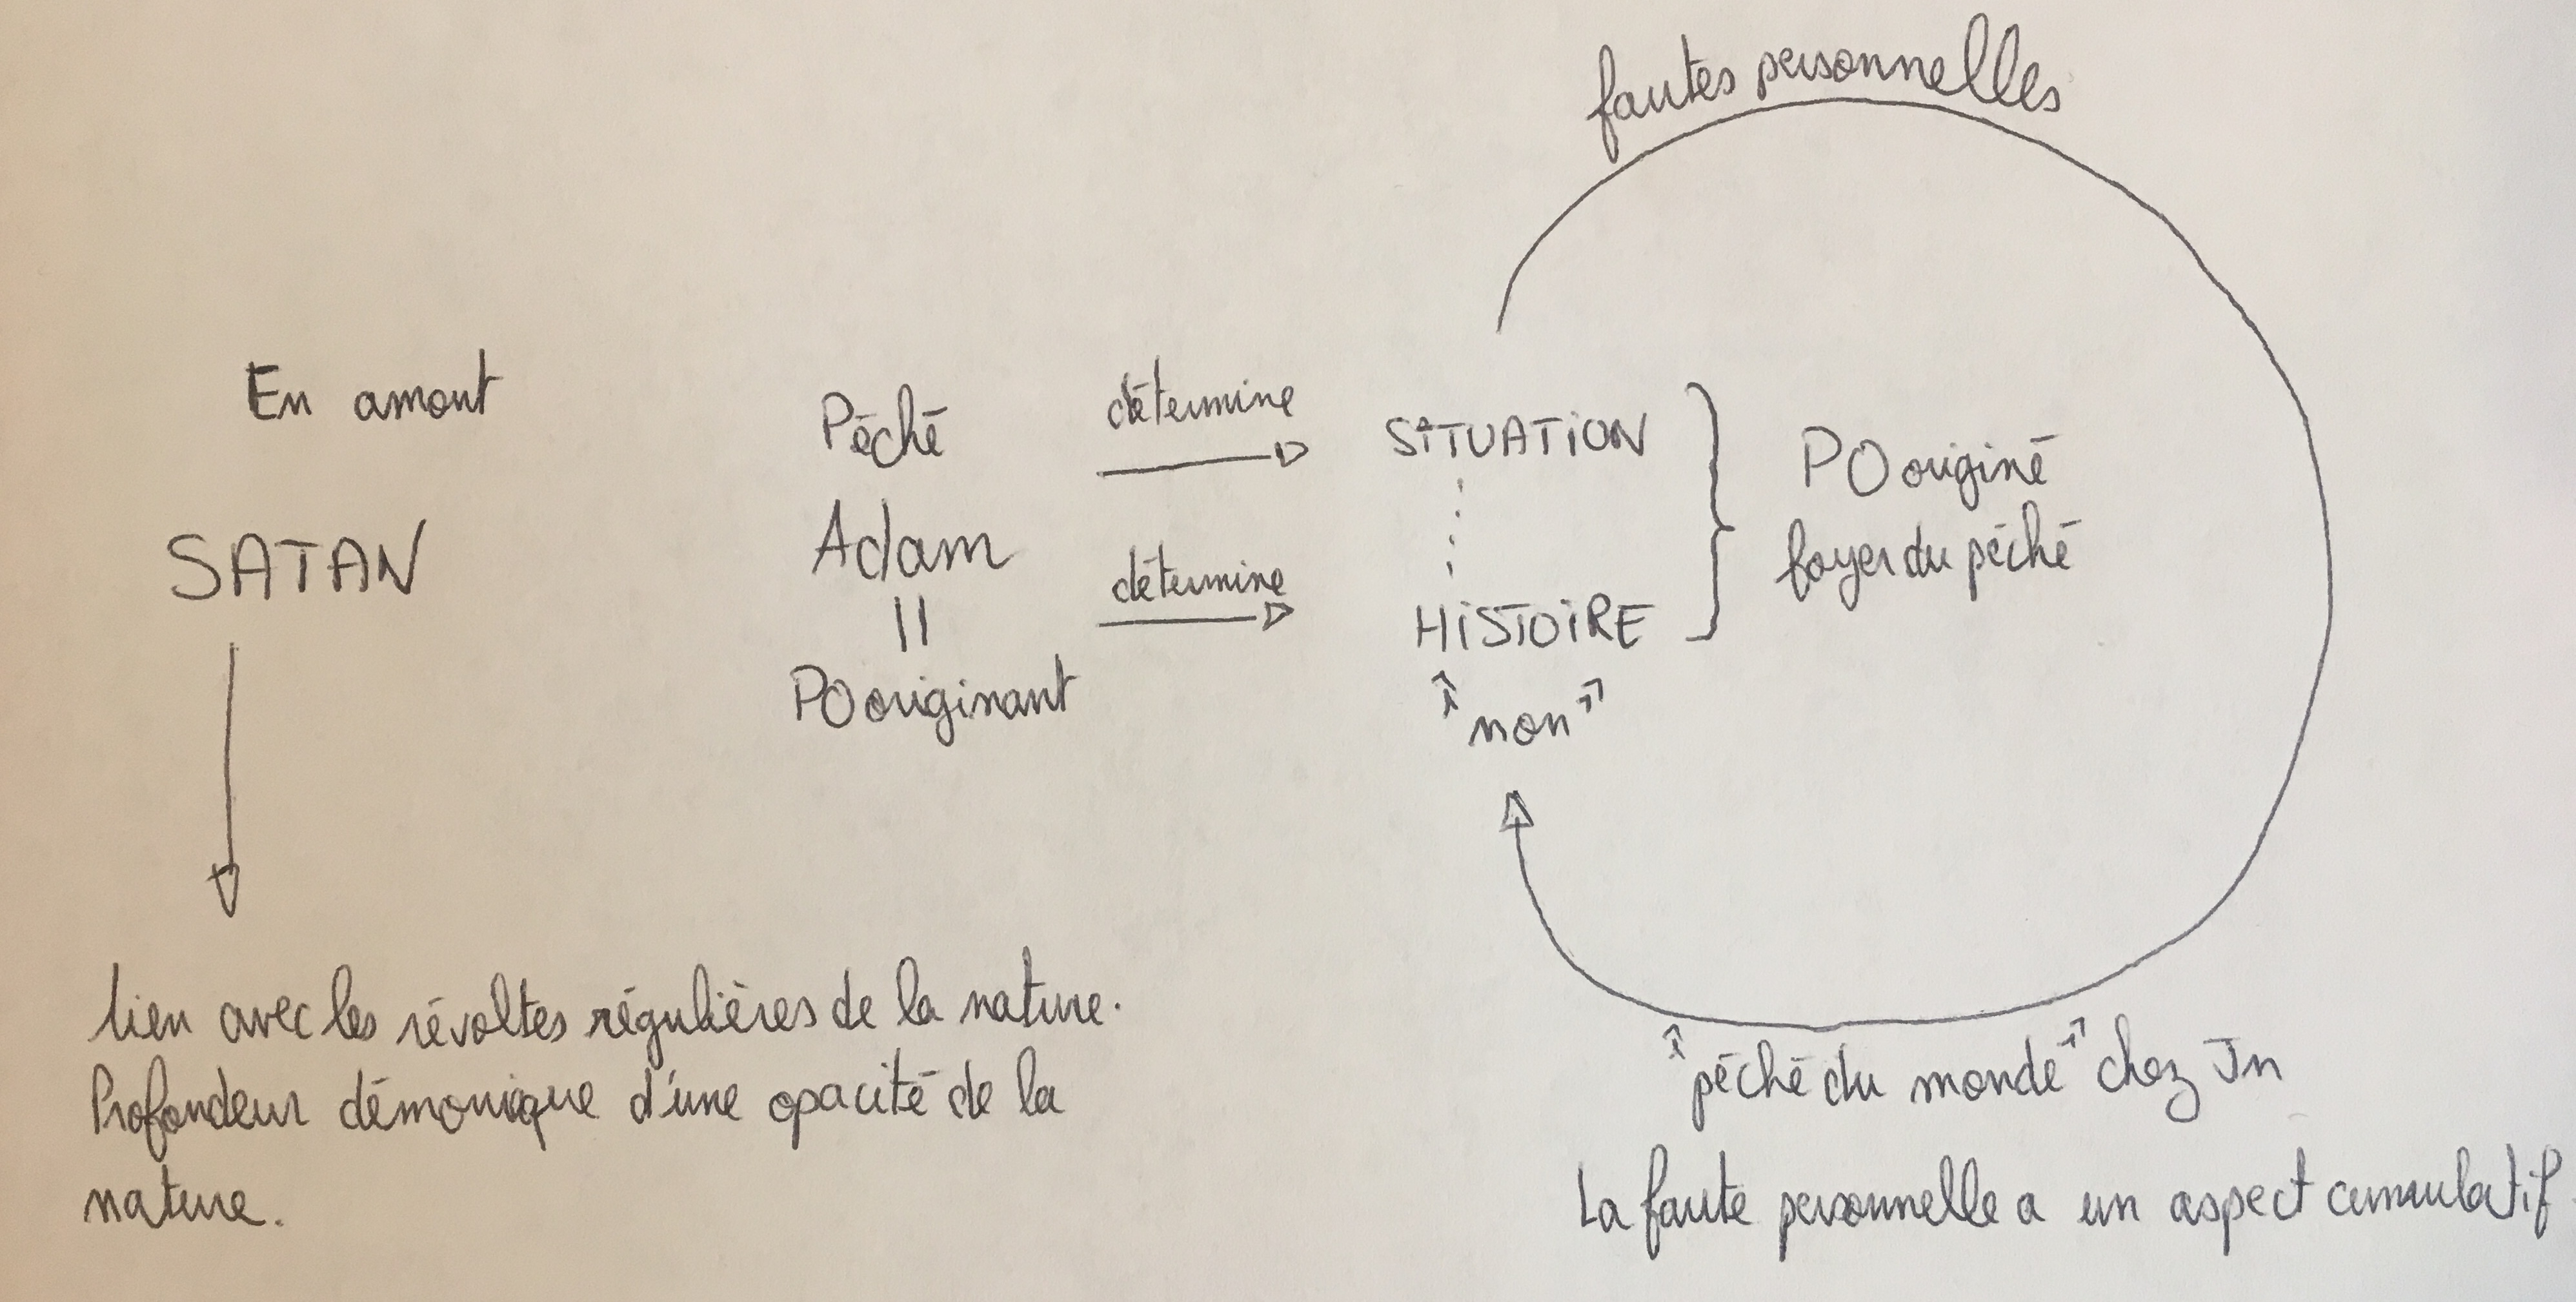 fautes personnelles
En amont
SATAN
lien avec les révoltes régulières de la nature.
Profondeur démoniaque d'une opacité de la
nature.
Péché
Adam
||
PO originant
détermine
détermine
SITUATION
HISTOIRE
"non"
PO originé
foyer du péché
"péché du monde" chez Jn
La faute personnelle a un aspect cumulatif.